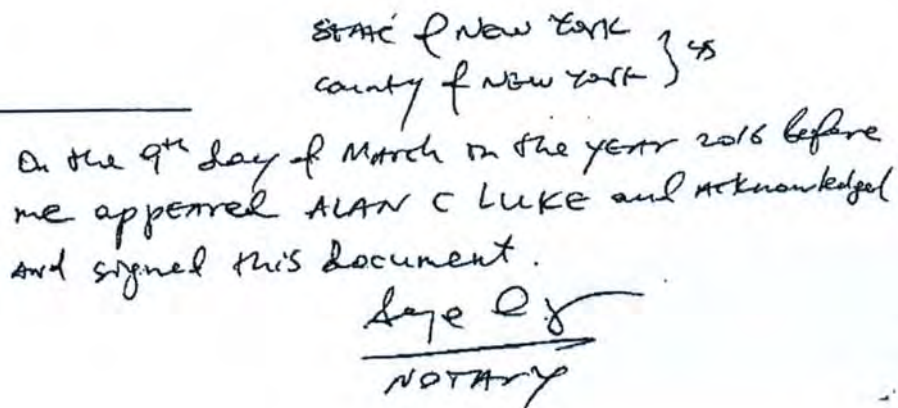 STATE of NEW YORK
county of NEW YORK } ss
On the 9th day of March in the year 2016 before
me appeared ALAN C LUKE and Acknowledged
And signed this document.
NOTARY